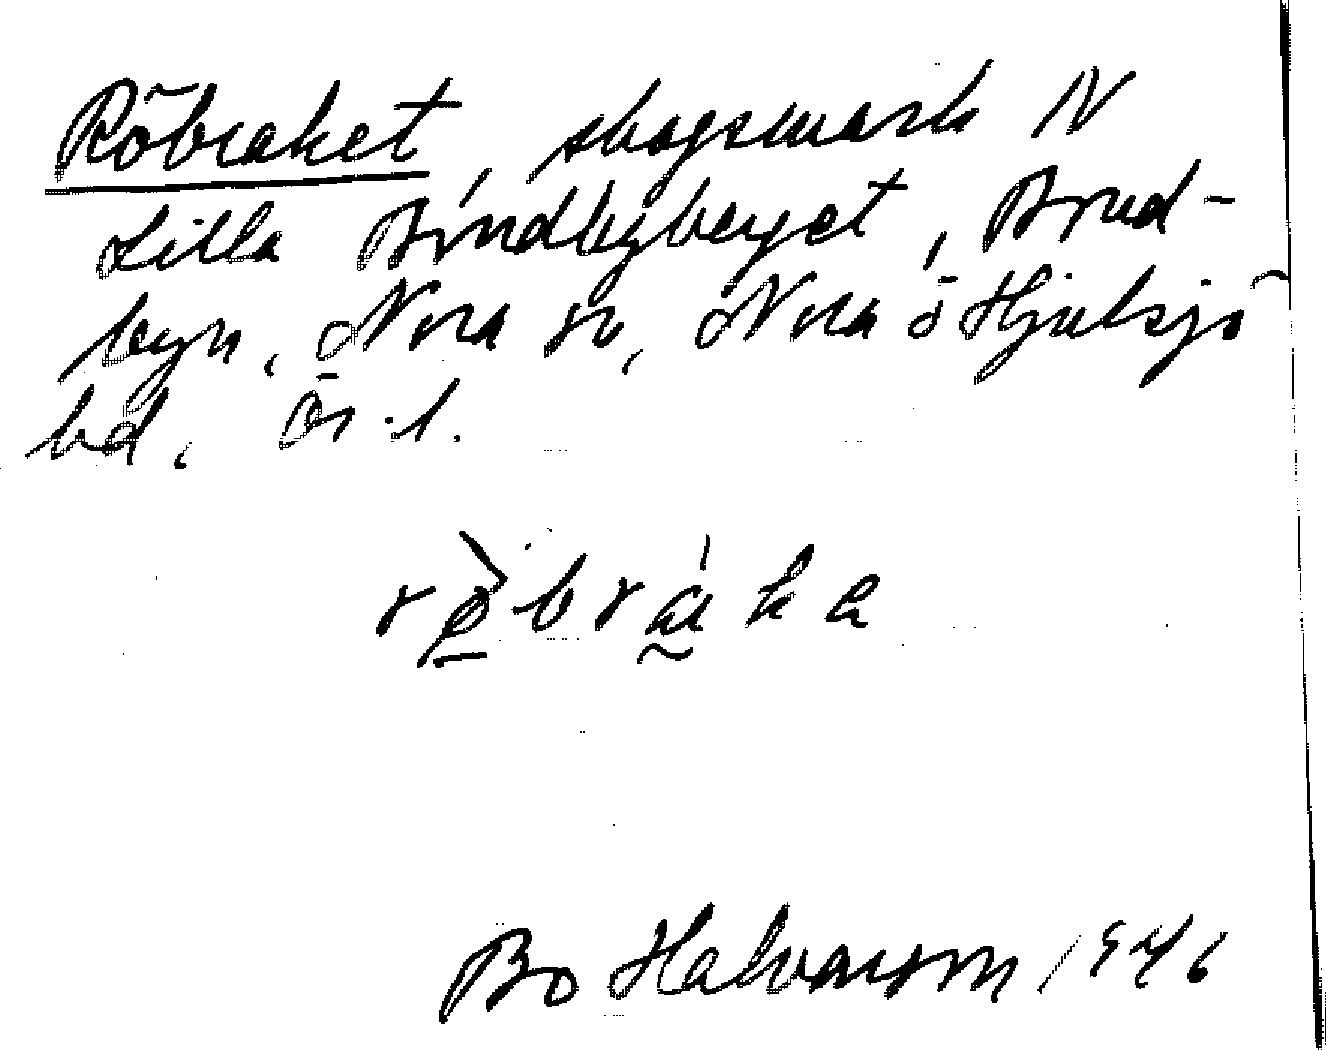 Röbraket, skogsmark N
Lilla Bondbyberget, Bond-
byn, Nora sn, Nora ö Hjulsjö
bd, Ör. l.
rø̀bráka
Bo Halvarson 1946